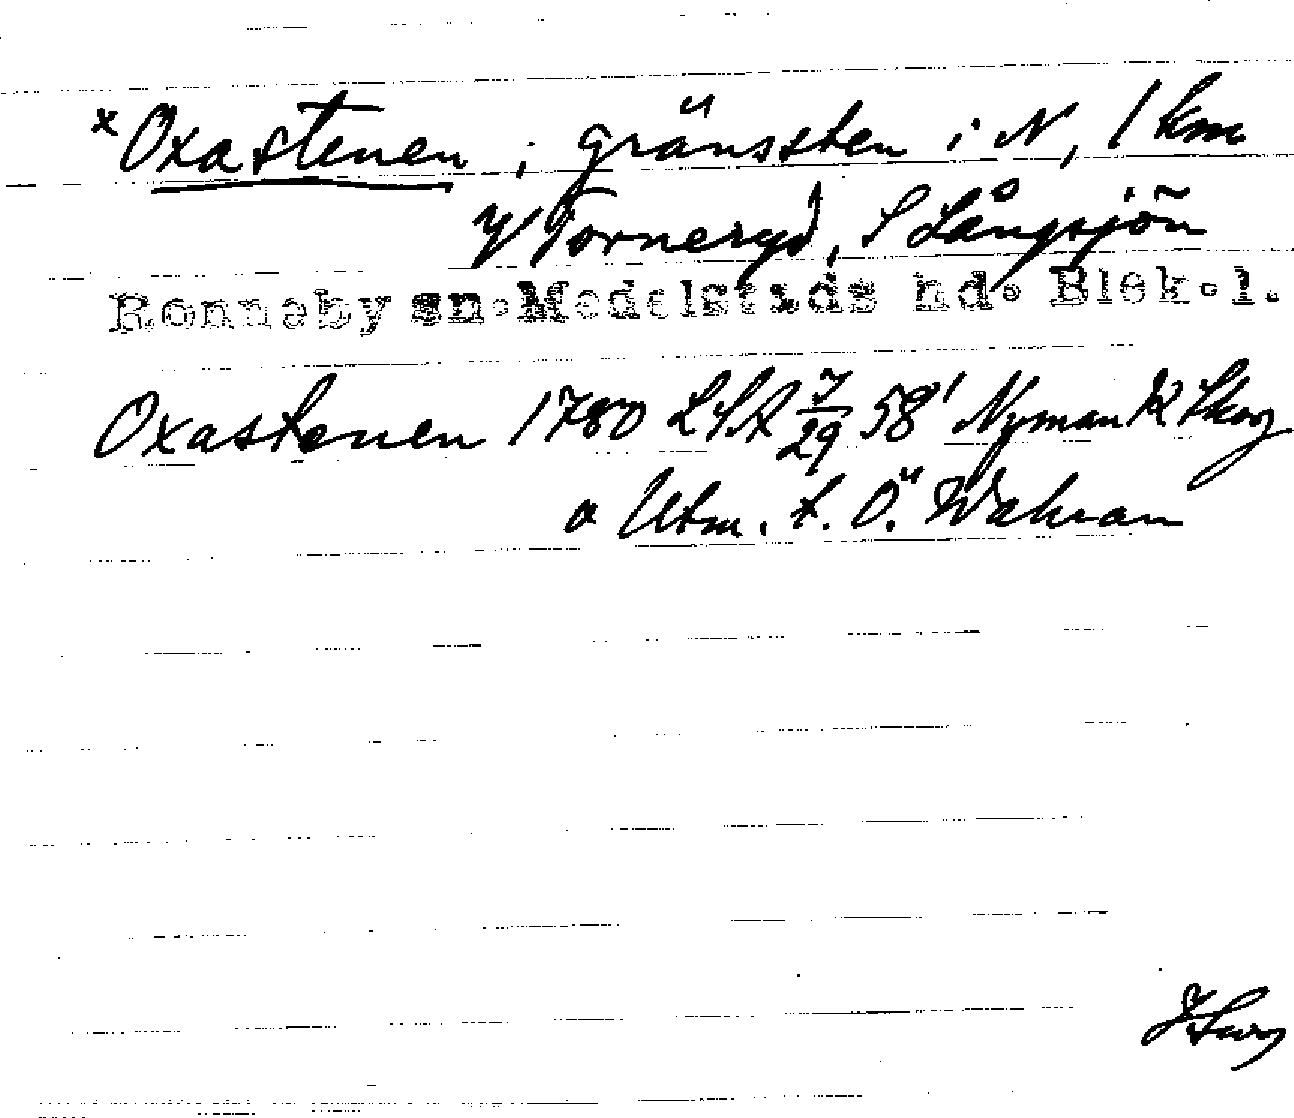 x Oxastenen, gränssten i N, 1 km
V Torneryd, S Långsjön
Ronneby sn. Medelstads hd. Blek. l.
Oxastenen 1780 LSA 7/29 58' Nyman K Skog
o Utm. t. Ö.